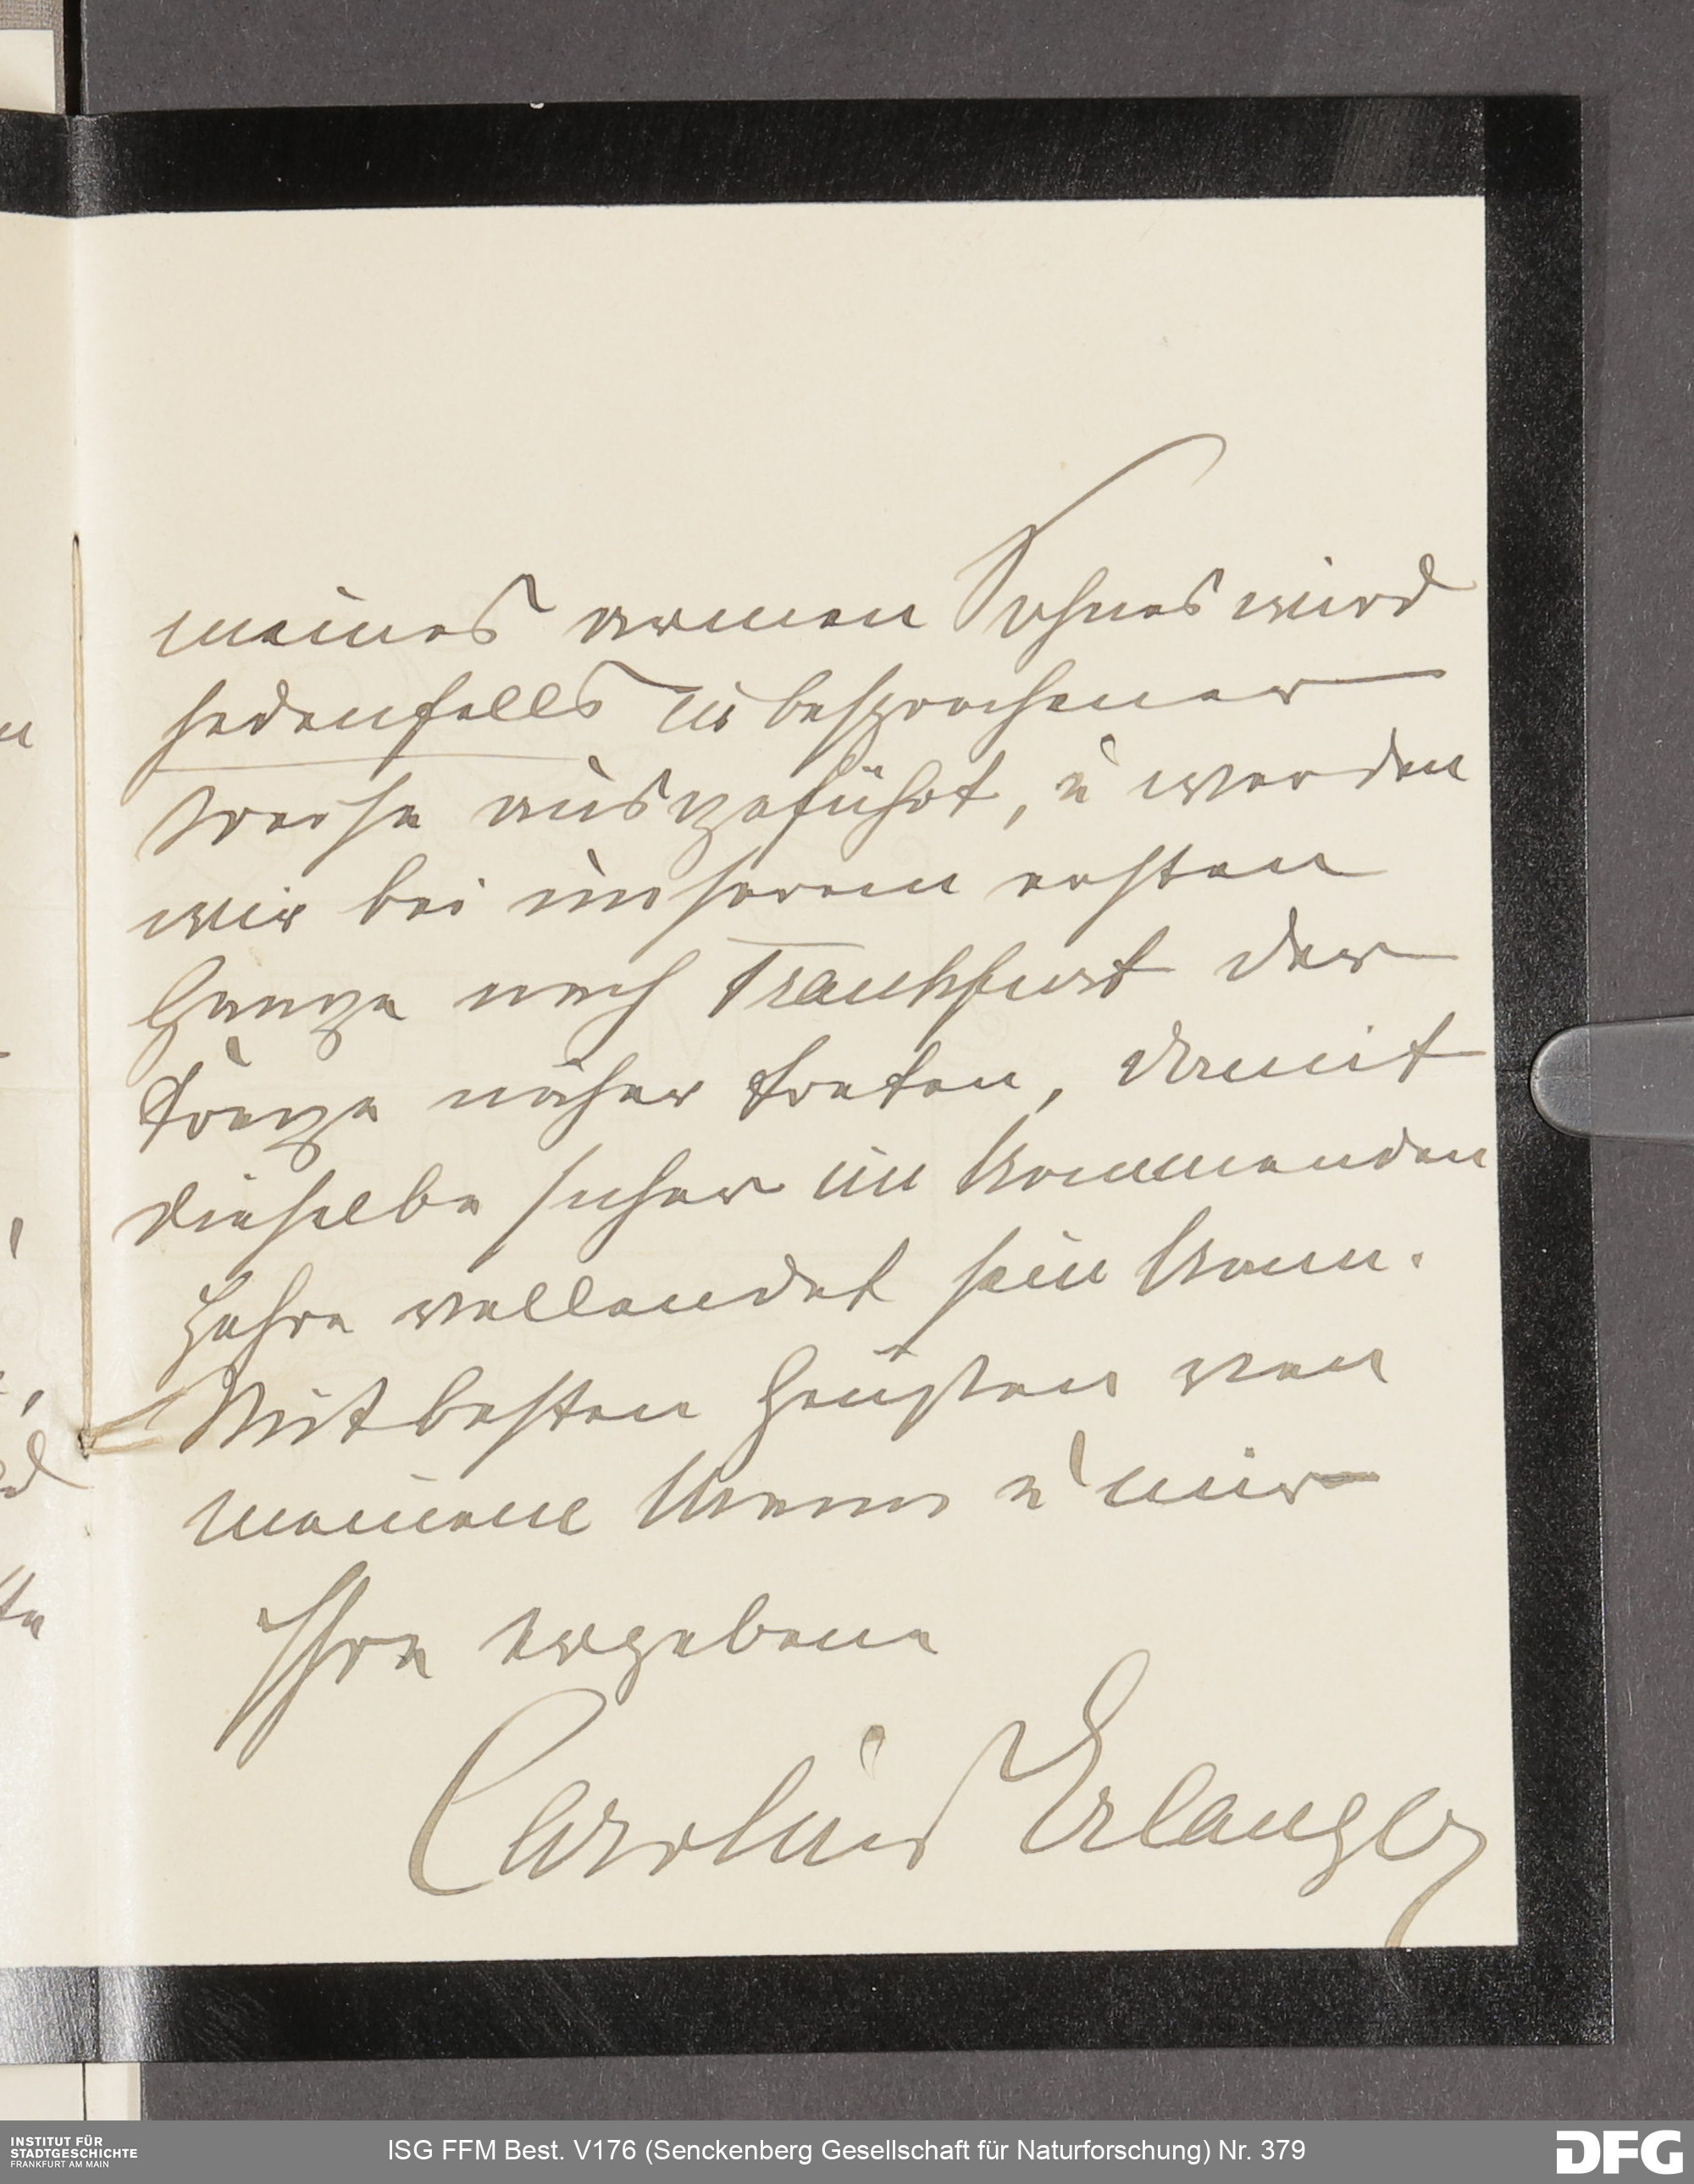 meines armen Sohnes wird
jedenfalls in besprochener
Weise ausgeführt, u werden
wir bei unserem ersten
Gange nach Frankfurt der
Frage näher treten, damit
dieselbe sicher im kommenden
Jahre vollendet sein kann.
Mit besten Grüßen von
meinem Mann u mir
Ihre ergebene
Caroline Erlanger
INSTITUT FÜR
STADTGESCHICHTE
FRANKFURT AM MAIN
ISG FFM Best. V176 (Senckenberg Gesellschaft für Naturforschung) Nr. 379
DFG